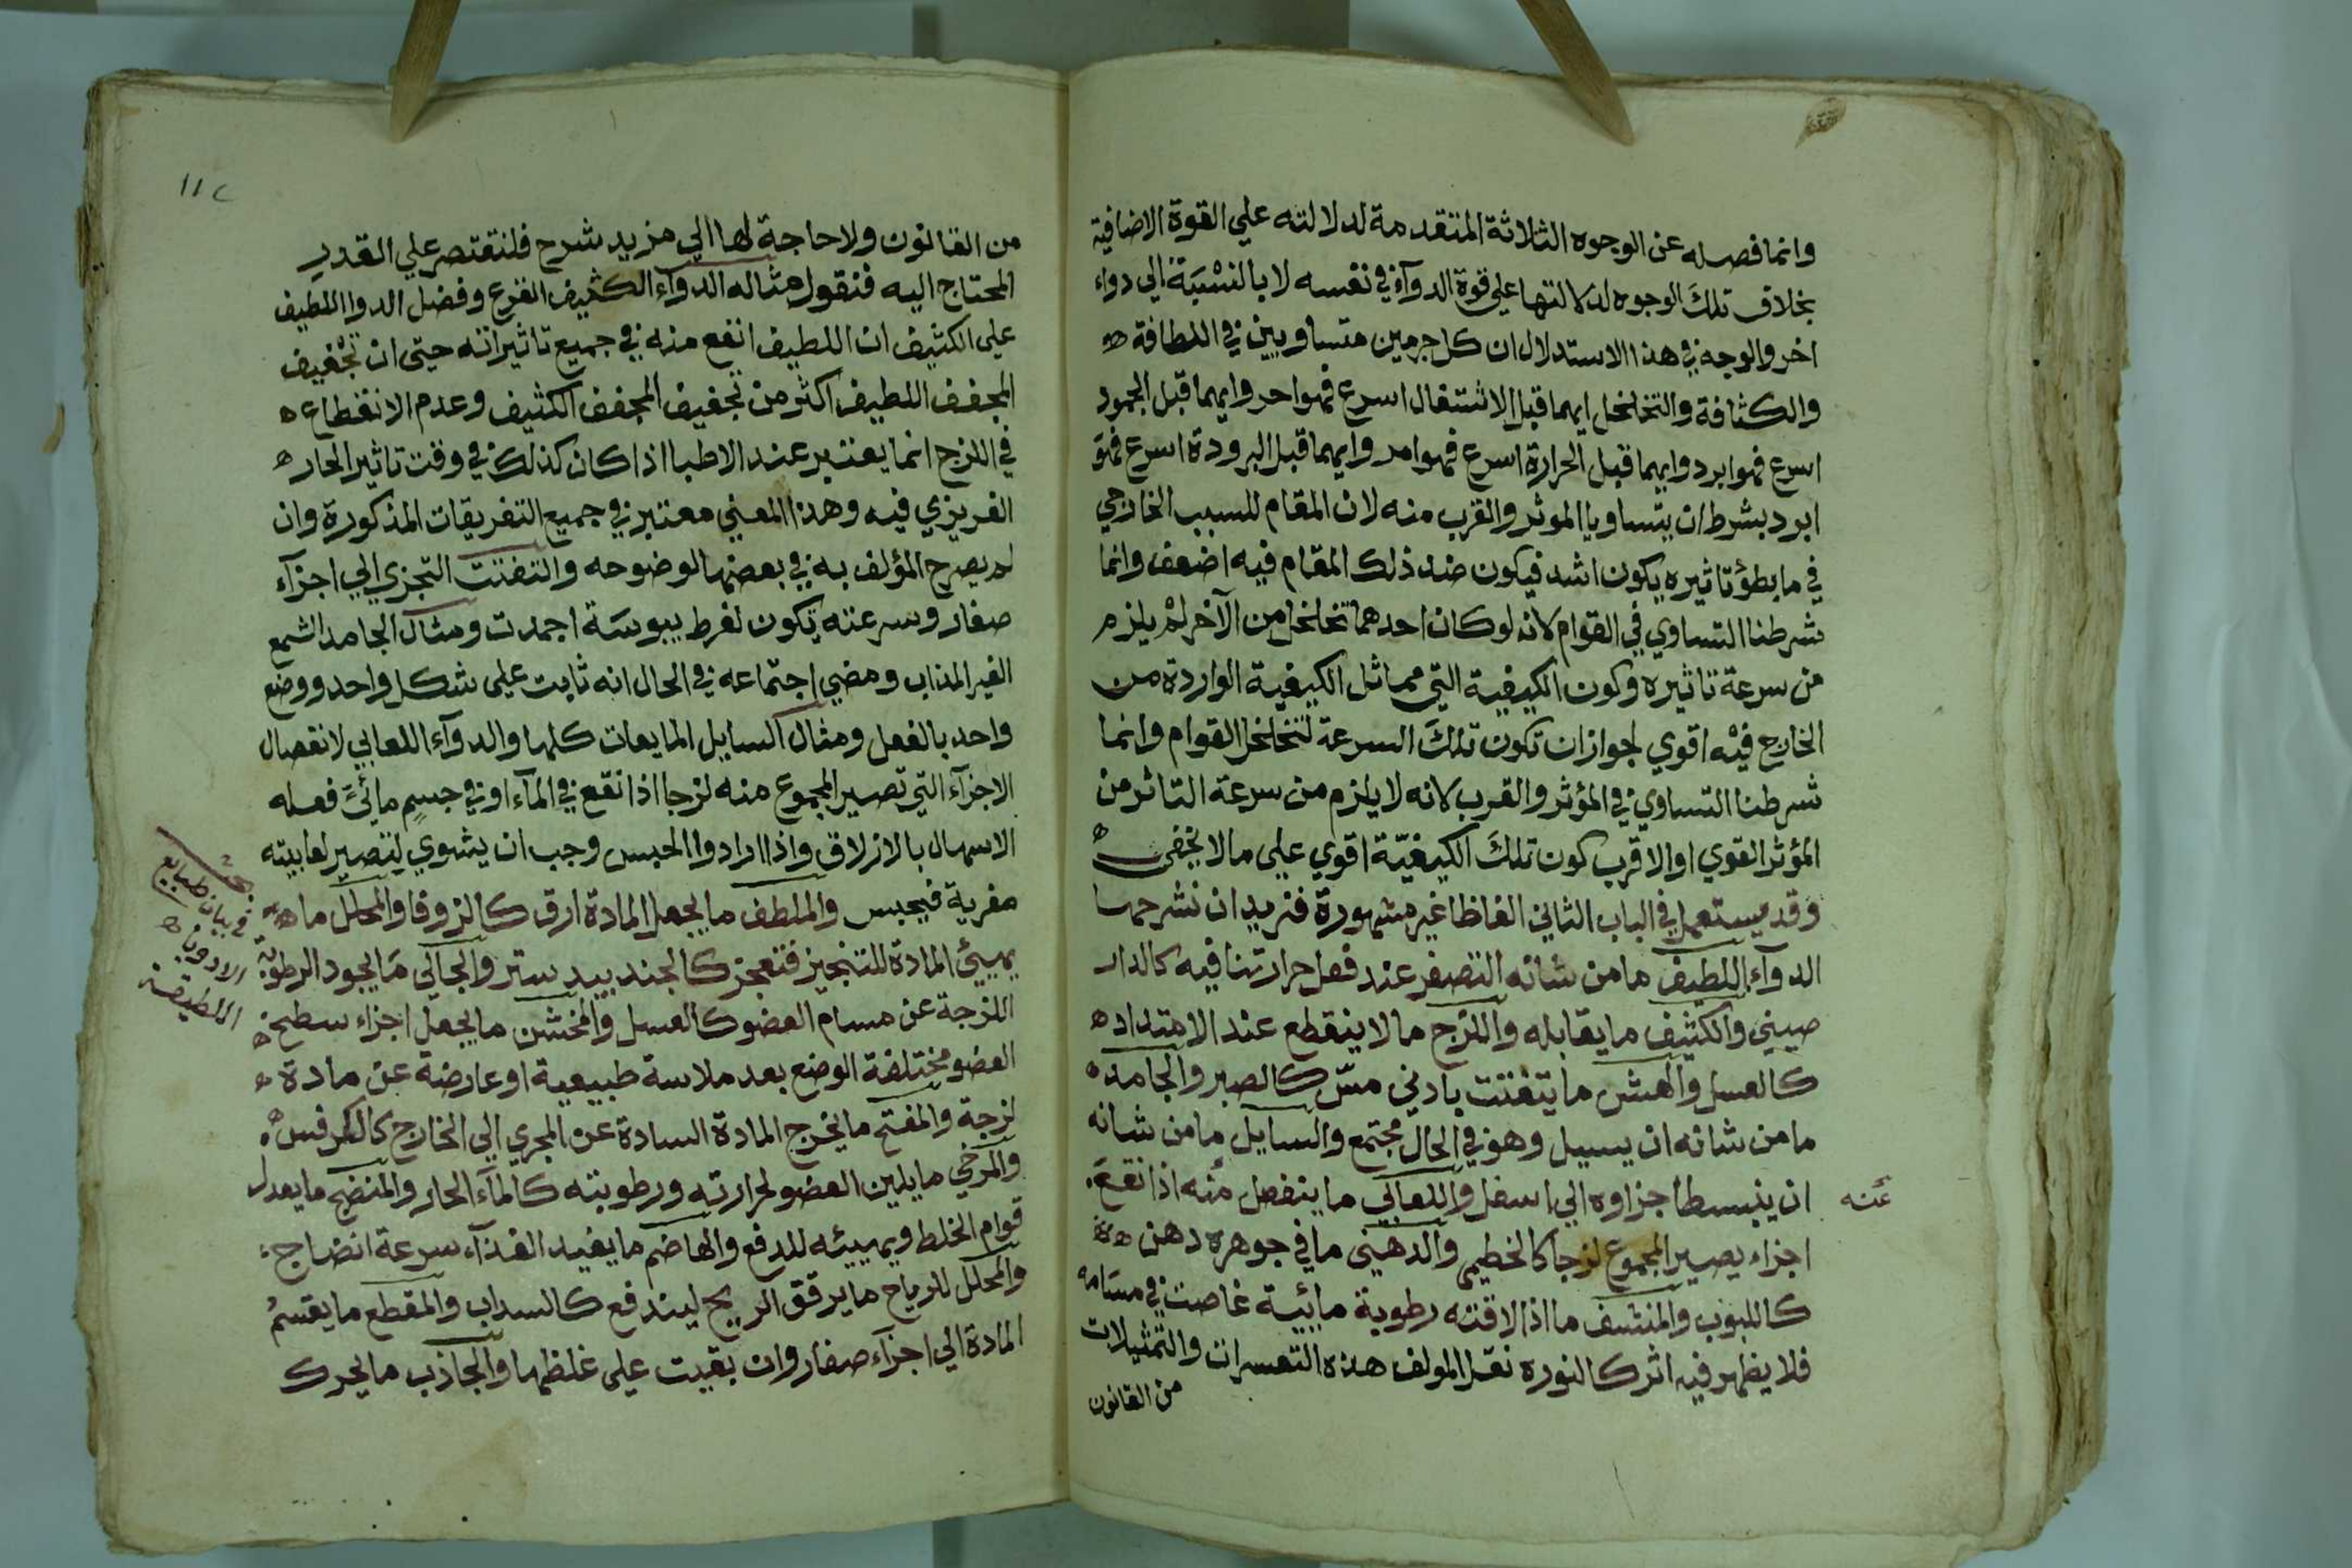 وانما فصله عن الوجوه الثلاثة المتقدمة لدلالته علي القوة الاضافية
بخلاف تلك الوجوه لدلالتها علي قوة الدوآء في نفسه لا بالنسبة الي دواء
اخر والوجه في هذا الاستدلال ان كل جرمين متساويين في اللطافة
والكثافة والتخلخل ايهما قبل الاشتعال اسرع فهو احر وايهما قبل الجمود
اسرع فهو ابرد وايهما قبل الحرارة اسرع فهو امد وايهما قبل البرودة اسرع فهو
ابرد بشرط ان يتساويا الموثر والقرب منه لان المقام للسبب الخارجي
في ما بطؤ تاثيره يكون اشد فيكون ضد ذلك المقام فيه اضعف وانما
شرطنا التساوي في القوام لانه لو كان احدهما تخلخل من الآخر لم يلزم
من سرعة تاثيره وكون الكيفية التي مماثل الكيفية الواردة من
الخارج فيه اقوي لجواز ان تكون تلك السرعة لتخلخل القوام وانما
شرطنا التساوي في المؤثر والقرب لانه لا يلزم من سرعة التاثر من
المؤثر القوي او الاقرب كون تلك الكيفية اقوي علي ما لا يخفي
وقد يستعمل في الباب الثاني الفاظا غير مشهورة فنريد ان نشرحها
الدوآء اللطيف ما من شانه التصغر عند فعل حرارتنا فيه كالدار
صيني والكثيف ما يقابله واللزج ما لا ينقطع عند الامتداد
كالعسل والهش ما يتفتت بادني مس كالصبر والجامد
ما من شانه ان يسيل وهو في الحال مجتمع والسايل ما من شانه
ان ينبسط اجزاوه الي اسفل واللعابي ما ينفصل منه اذا نقع
عنه
اجزاء يصير المجموع لزجا كالخطيمي والدهيني ما في جوهره دهن
كاللبوب والمنشف ما اذا لاقته رطوبة مائية غاصت في مسامه
فلا يظهر فيه اثر كالنوره نقل المولف هذه التفسرات والتمثيلات
من القانون
١١٢
من القانون ولا حاجة لها الي مزيد شرح فلنقتصر علي القدر
المحتاج اليه فنقول مثاله الدوآء الكثيف القرع وفضل الدوا اللطيف
علي الكثيف ان اللطيف انفع منه في جميع تاثيراته حتي ان تجفيف
المجفف اللطيف اكثر من تجفيف المجفف الكثيف وعدم الانقطاع
في اللزج انما يعتبر عند الاطبا اذا كان كذلك في وقت تاثير الحار
الغريزي فيه وهذا المعني معتبر في جميع التفريقات المذكورة وان
لم يصرح المؤلف به في بعضها لوضوحه والتفتت التجزي الي اجزآء
صغار وسرعته يكون لفرط يبوسة اجمدت ومثال الجامد الشمع
الغير المذاب ومضي اجتماعه في الحال انه ثابت علي شكل واحد ووضع
واحد بالفعل ومثال السايل المايعات كلها والدوآء اللعابي لانفصال
الاجزآء التي تصير المجموع منه لزجا اذا نقع في المآء او في جسم مائي فعله
الاسهال بالازلاق واذا ارادوا الحبس وجب ان يشوي لتصير لعابيته
مغرية فيحبس والملطف ما يجعل المادة ارق كالزوفا والمحلل ما
يهييئ المادة للتبخير فتعجز كالجندبيدستر والجالي ما يجرد الرطوبة
اللزجة عن مسام العضو كالعسل والمخشن ما يجعل اجزاء سطح
العضو مختلفة الوضع بعد ملاسة طبيعية او عارضة عن مادة
لزجة والمفتح ما يخرج المادة السادة عن المجري الي الخارج كالكرفس
والمرخي ما يلين العضو لحرارته ورطوبته كالمآء الحار والمنضج ما يعدل
قوام الخلط ويهييئه للدفع والهاضم ما يفيد الغذآء سرعة انضاج
والمحلل للرياح ما يرقق الريح ليندفع كالسداب والمقطع ما يقسم
المادة الي اجزآء صغار وان بقيت علي غلظها والجاذب ما يحرك
بحث
في بيان طبايع
الادوية
اللطيفة